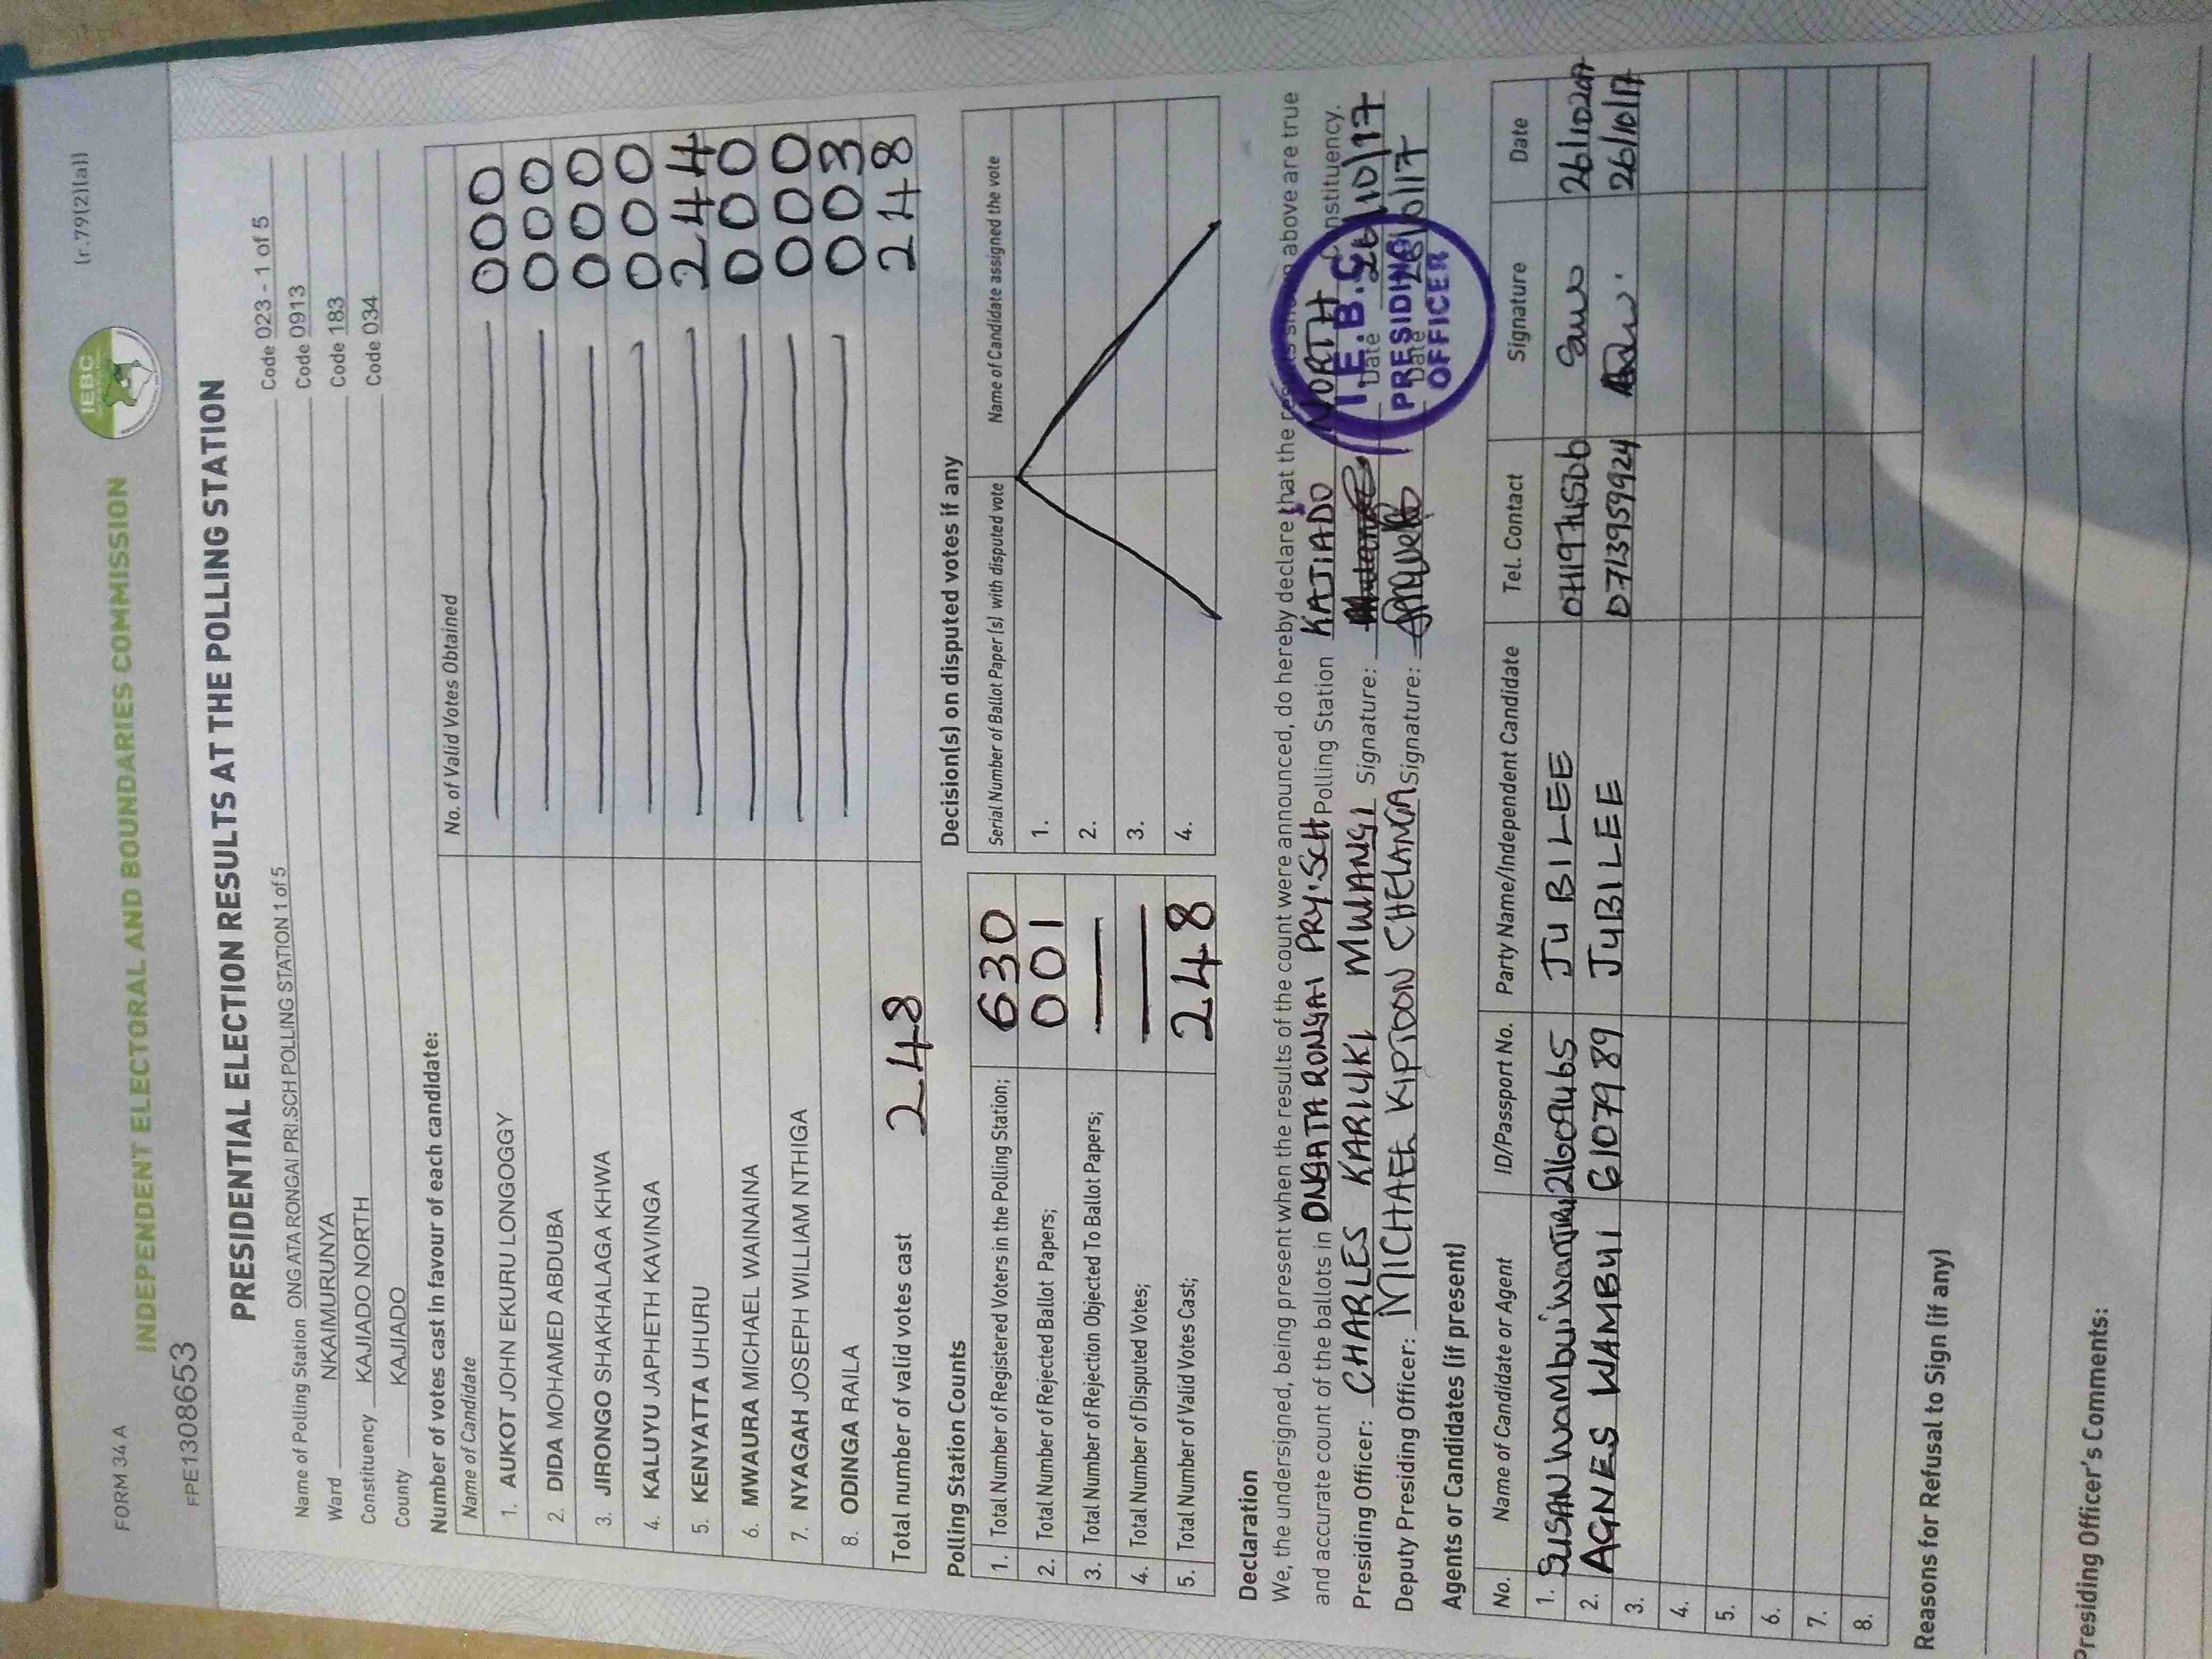 FORM 34 A
(r.79(2)(a))
IEBC
INDEPENDENT ELECTORAL AND BOUNDARIES COMMISSION
FPE1308653
PRESIDENTIAL ELECTION RESULTS AT THE POLLING STATION
Name of Polling Station ONGATA RONGAI PRI.SCH POLLING STATION 1 of 5 Code 023 - 1 of 5
Ward NKAIMURUNYA Code 0913
Constituency KAJIADO NORTH Code 183
County KAJIADO Code 034
Number of votes cast in favour of each candidate:
Name of Candidate No. of Valid Votes Obtained
1. AUKOT JOHN EKURU LONGOGGY 000
2. DIDA MOHAMED ABDUBA 000
3. JIRONGO SHAKHALAGA KHWA 000
4. KALUYU JAPHETH KAVINGA 000
5. KENYATTA UHURU 244
6. MWAURA MICHAEL WAINAINA 000
7. NYAGAH JOSEPH WILLIAM NTHIGA 000
8. ODINGA RAILA 003
Total number of valid votes cast 248 248
Polling Station Counts
1. Total Number of Registered Voters in the Polling Station; 630
2. Total Number of Rejected Ballot Papers; 001
3. Total Number of Rejection Objected To Ballot Papers; —
4. Total Number of Disputed Votes; —
5. Total Number of Valid Votes Cast; 248
Decision(s) on disputed votes if any
Serial Number of Ballot Paper (s) with disputed vote Name of Candidate assigned the vote
1.
2.
3.
4.
Declaration
We, the undersigned, being present when the results of the count were announced, do hereby declare that the results shown above are true
and accurate count of the ballots in ONGATA RONGAI PRY. SCH Polling Station KAJIADO NORTH Constituency.
Presiding Officer: CHARLES KARIUKI MWANGI Signature: Date 26/10/17
Deputy Presiding Officer: MICHAEL KIPTOON CHELANGA Signature: Date 26/10/17
I.E.B.C
PRESIDING
OFFICER
Agents or Candidates (if present)
No. Name of Candidate or Agent ID/Passport No. Party Name/Independent Candidate Tel. Contact Signature Date
1. SUSAN WAMBUI WANJIRU JUBILEE 26/10/2017
2. AGNES WAMBUI 6107989 JUBILEE 0713959924 26/10/17
3.
4.
5.
6.
7.
8.
Reasons for Refusal to Sign (if any)
Presiding Officer's Comments: